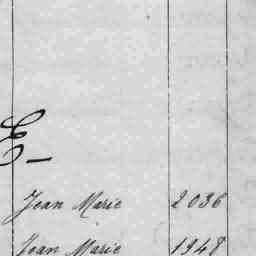 E –
Jean Marie 2036
Jean Marie 1948